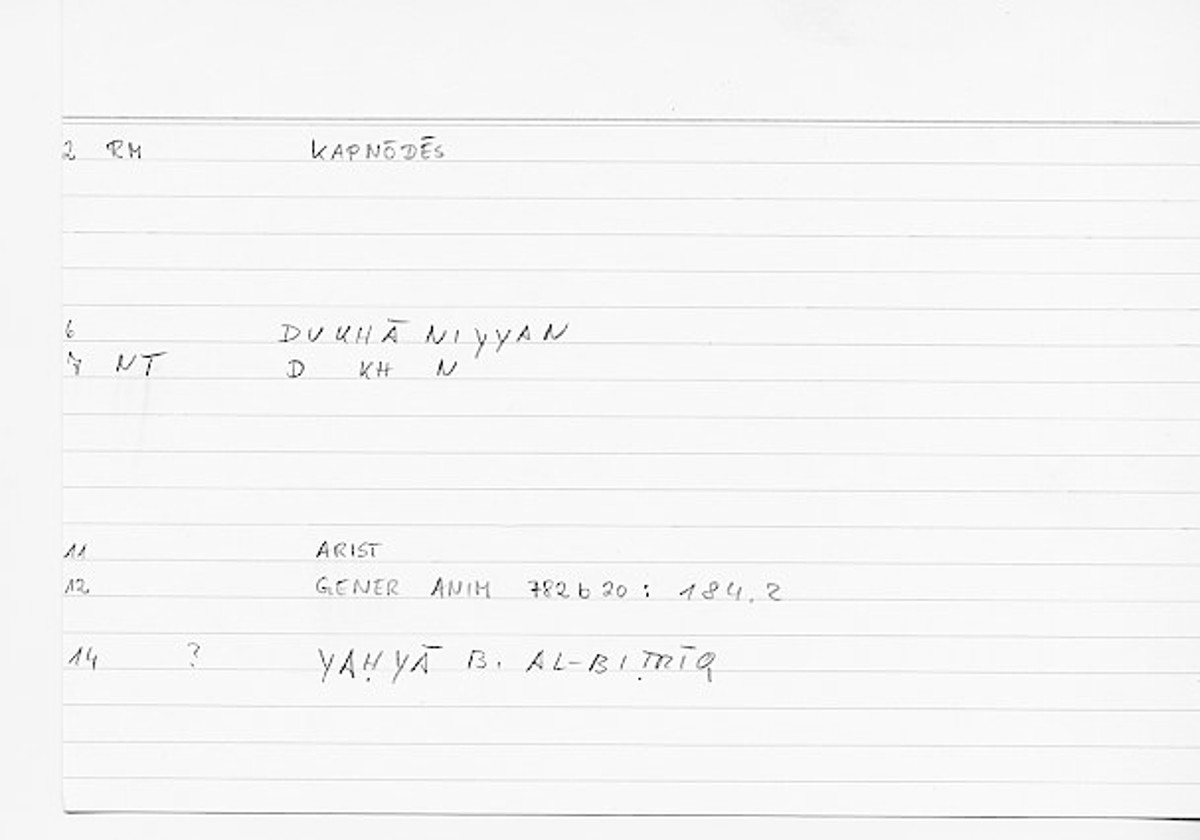 2 RM KAPNŌDĒS
6 DUKHĀNIYYAN
7 NT D KH N
11 ARIST
12 GENER ANIM 782b20: 184.2
14 ? YAḤYĀ B. AL-BIṬRĪQ